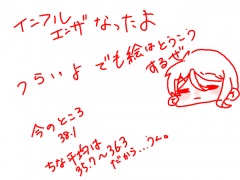 インフル
エンザ なったよ
つらいよ でも絵はとうこう
するぜ
今のところ
38.1
ちな平均は
35.7〜36.3
だから…うん。